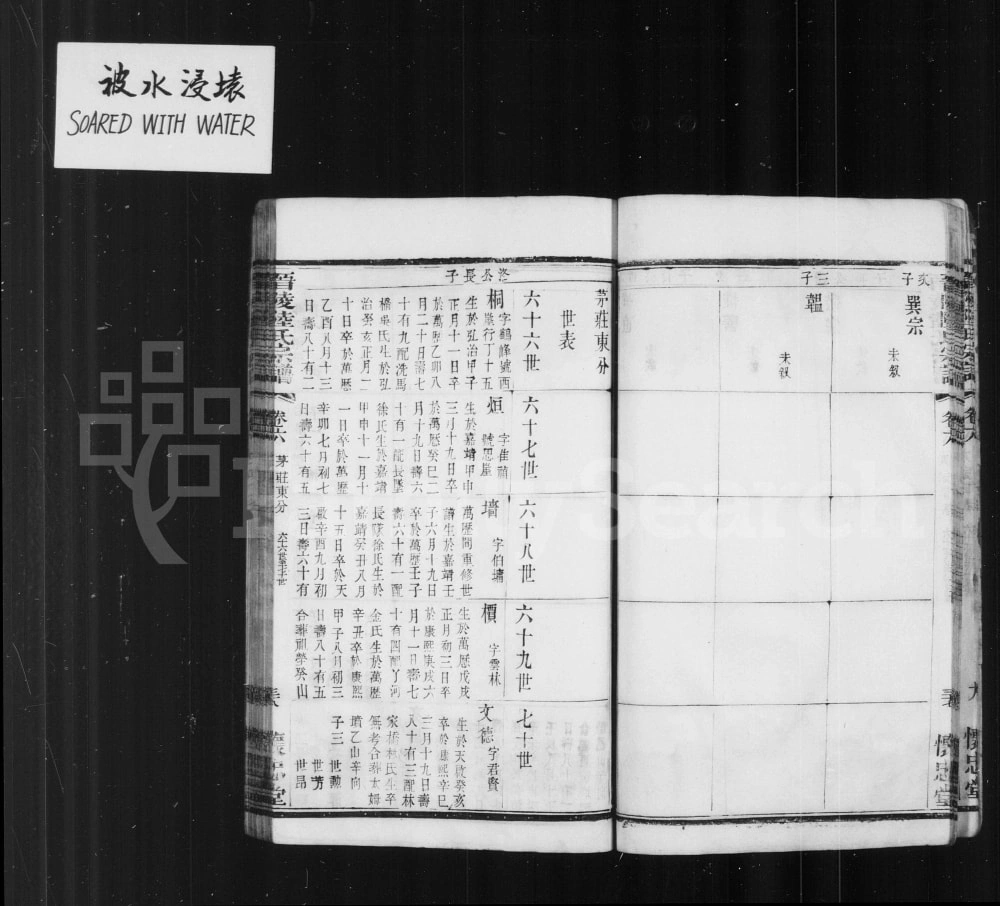 被水浸壞
SOARED WITH WATER
三子
巽宗
未叙
韞
未叙
茅莊東分
世表
六十六世
六十七世
六十八世
六十九世
七十世
長子
桐字鶴峰號西
行丁十五
生於弘治甲子
正月十一日卒
於萬歷乙卯八
月二十日壽七
十有九配洗馬
橋吳氏生於弘
治癸亥正月二
十日卒於萬歷
乙酉八月十三
日壽八十有二
烜
字崔
號思崖
生於嘉靖甲申
三月十九日卒
於萬歷癸巳二
月十九日壽六
十有一配長墜
徐氏生於嘉靖
甲申十一月十
一日卒於萬歷
辛卯七月初七
日壽六十有五
墻
字伯墉
萬歷間重修世
譜生於嘉靖壬
子六月十九日
卒於萬歷壬子
壽六十有一配
長墜徐氏生於
嘉靖癸丑八月
十五日卒於天
啟辛酉九月初
三日壽六十有
櫝
字雲林
生於萬歷戊戌
正月初三日卒
於康熙庚戌六
月十一日壽七
十有四配丫河
金氏生於萬歷
辛丑卒於康熙
甲子八月初三
日壽八十有五
合葬祖塋癸山
文德字君賢
生於天啟癸亥
卒於康熙辛巳
三月十九日壽
八十有三配林
家橋林氏生卒
無考合葬太姆
墳乙山辛向
子三
世勲
世芳
世昂
晋陵陸氏宗譜
卷六
茅莊東分
六十六世至七十世
懷忠堂